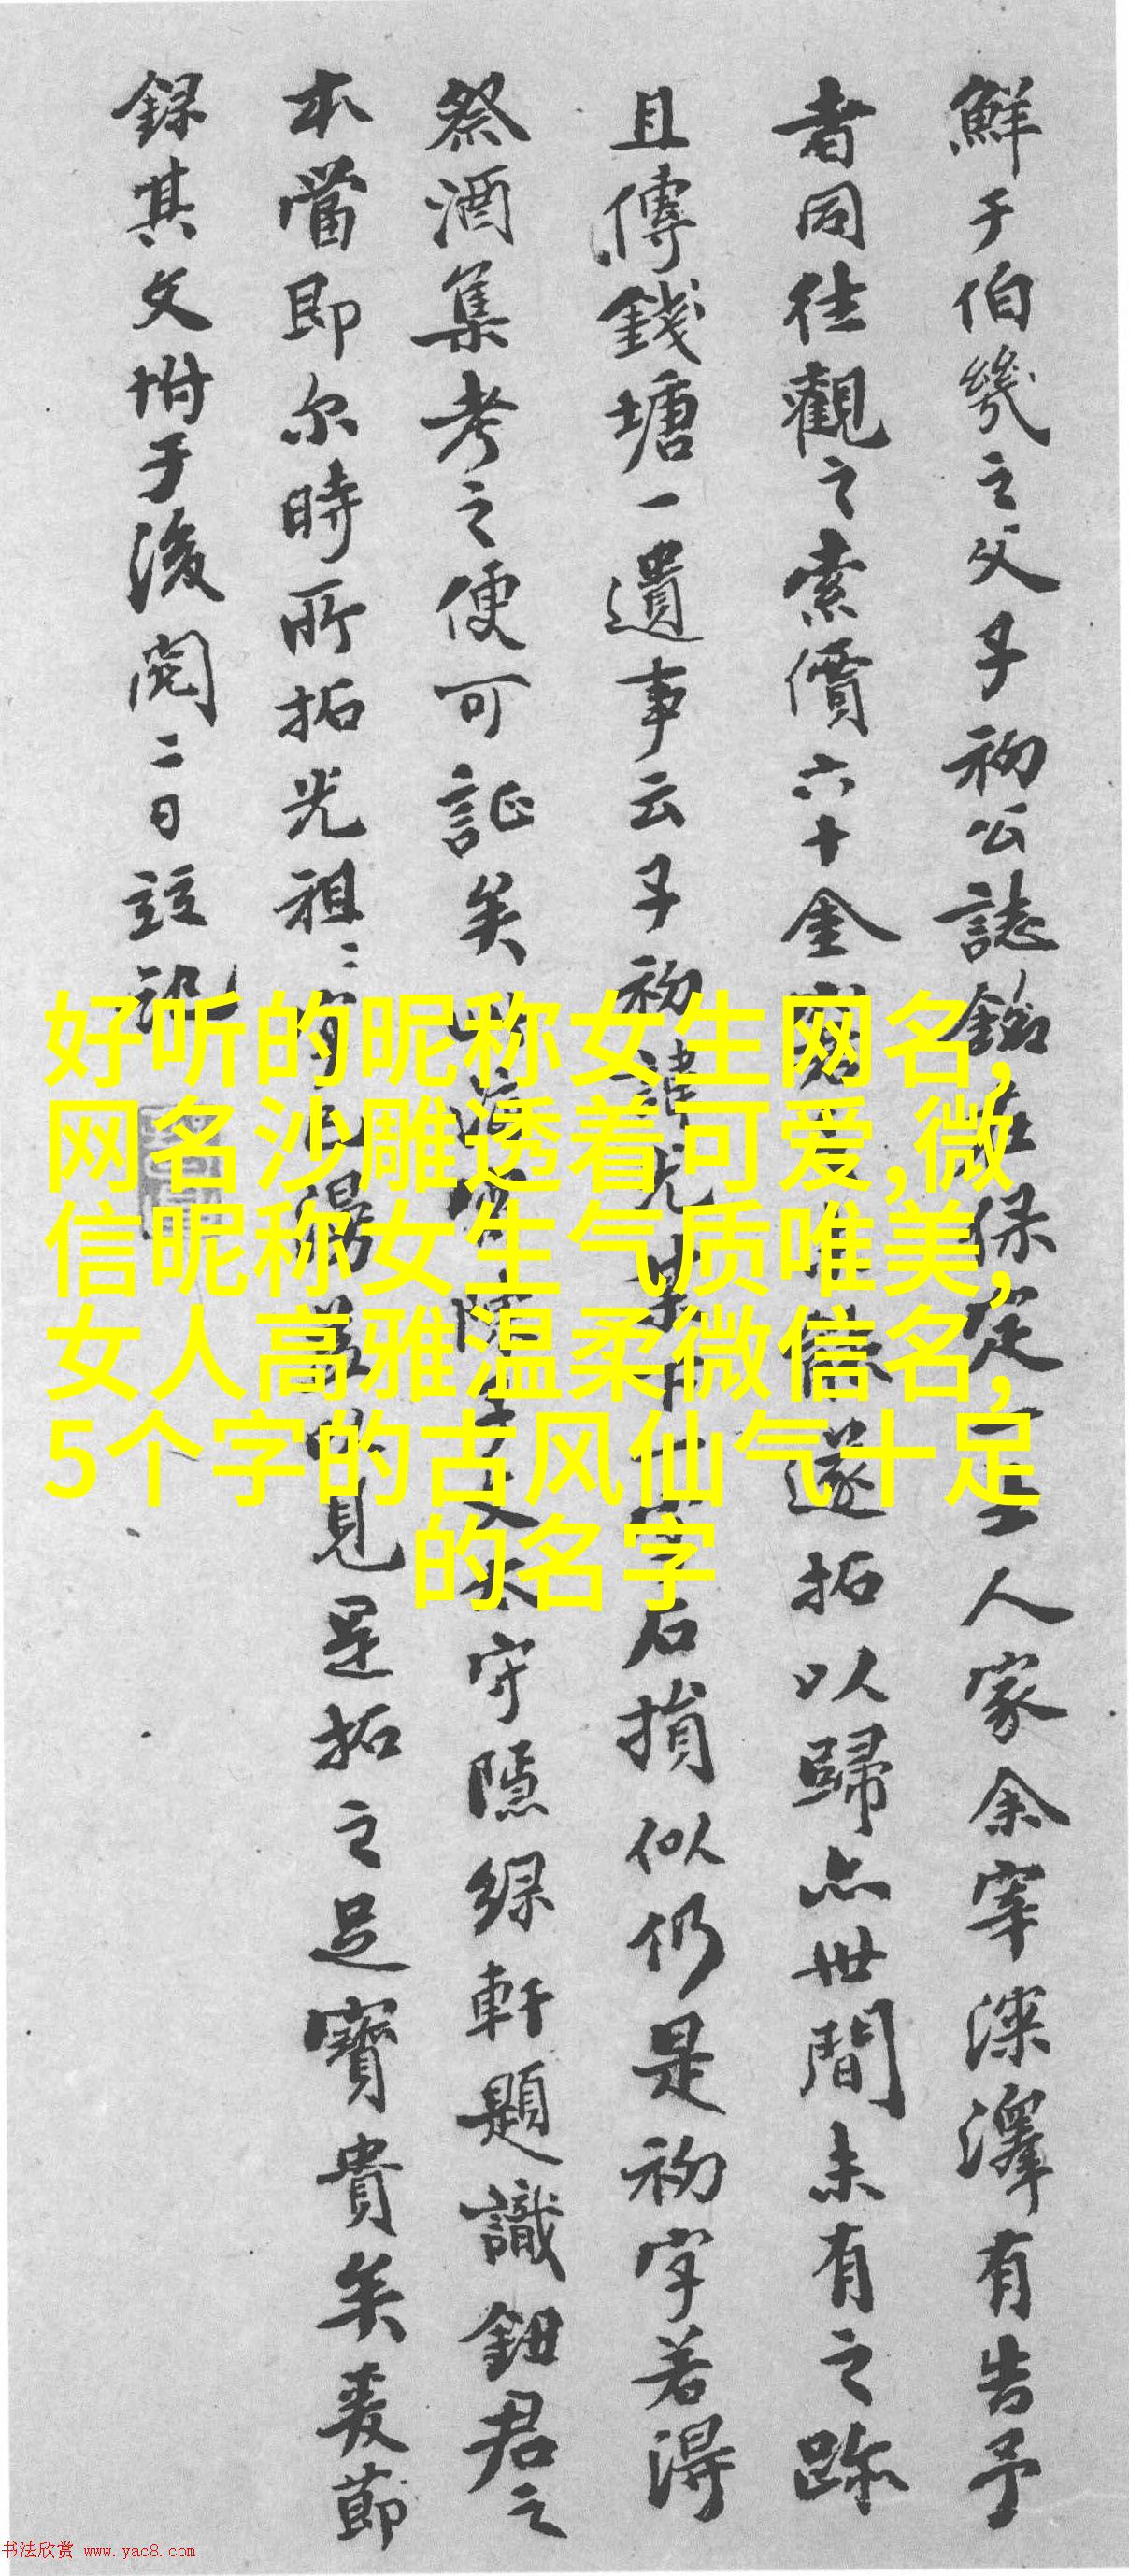 鮮于伯幾之父子初公誌銘在保定一士人家余宰深澤有告予
者同往觀之索價六十金
遂拓以歸亦世間未有之跡
且傳錢塘一遺事云子初諱尤某下一字石損似仍是初字若得
祭酒集考之便可証矣
太守隱綠軒題識鈕君之
本當即尔時所拓光祖
見是拓之足寶貴矣爰節
錄其文坿于後閱二日竝記
好听的昵称女生网名,
网名沙雕透着可爱,微
信昵称女生气质唯美,
女人高雅温柔微信名,
5个字的古风仙气十足
的名字
书法欣赏 www.yac8.com